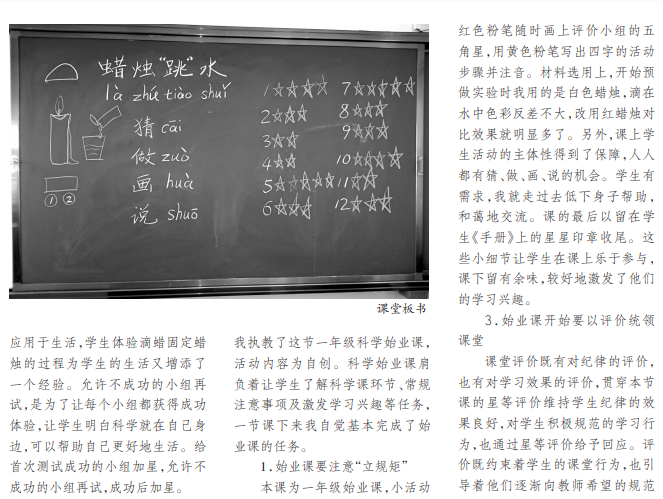 蜡烛“跳”水
là zhú tiào shuǐ
猜 cāi
做 zuò
画 huà
说 shuō
① ②
1☆☆☆☆
2☆☆☆
3☆☆
4☆☆
5☆☆☆☆☆
6☆☆☆
7☆☆☆☆☆
8☆☆☆
9☆☆☆
10☆☆☆☆
11☆☆
12☆☆☆
课堂板书
应用于生活,学生体验滴蜡固定蜡
烛的过程为学生的生活又增添了
一个经验。允许不成功的小组再
试,是为了让每个小组都获得成功
体验,让学生明白科学就在自己身
边,可以帮助自己更好地生活。给
首次测试成功的小组加星,允许不
成功的小组再试,成功后加星。
我执教了这节一年级科学始业课,
活动内容为自创。科学始业课肩
负着让学生了解科学课环节、常规
注意事项及激发学习兴趣等任务,
一节课下来我自觉基本完成了始
业课的任务。
1.始业课要注意“立规矩”
本课为一年级始业课,小活动
红色粉笔随时画上评价小组的五
角星,用黄色粉笔写出四字的活动
步骤并注音。材料选用上,开始预
做实验时我用的是白色蜡烛,滴在
水中色彩反差不大,改用红蜡烛对
比效果就明显多了。另外,课上学
生活动的主体性得到了保障,人人
都有猜、做、画、说的机会。学生有
需求,我就走过去低下身子帮助,
和蔼地交流。课的最后以留在学
生《手册》上的星星印章收尾。这
些小细节让学生在课上乐于参与,
课下留有余味,较好地激发了他们
的学习兴趣。
3.始业课开始要以评价统领
课堂
课堂评价既有对纪律的评价,
也有对学习效果的评价,贯穿本节
课的星等评价维持学生纪律的效
果良好,对学生积极规范的学习行
为,也通过星等评价给予回应。评
价既约束着学生的课堂行为,也引
导着他们逐渐向教师希望的规范